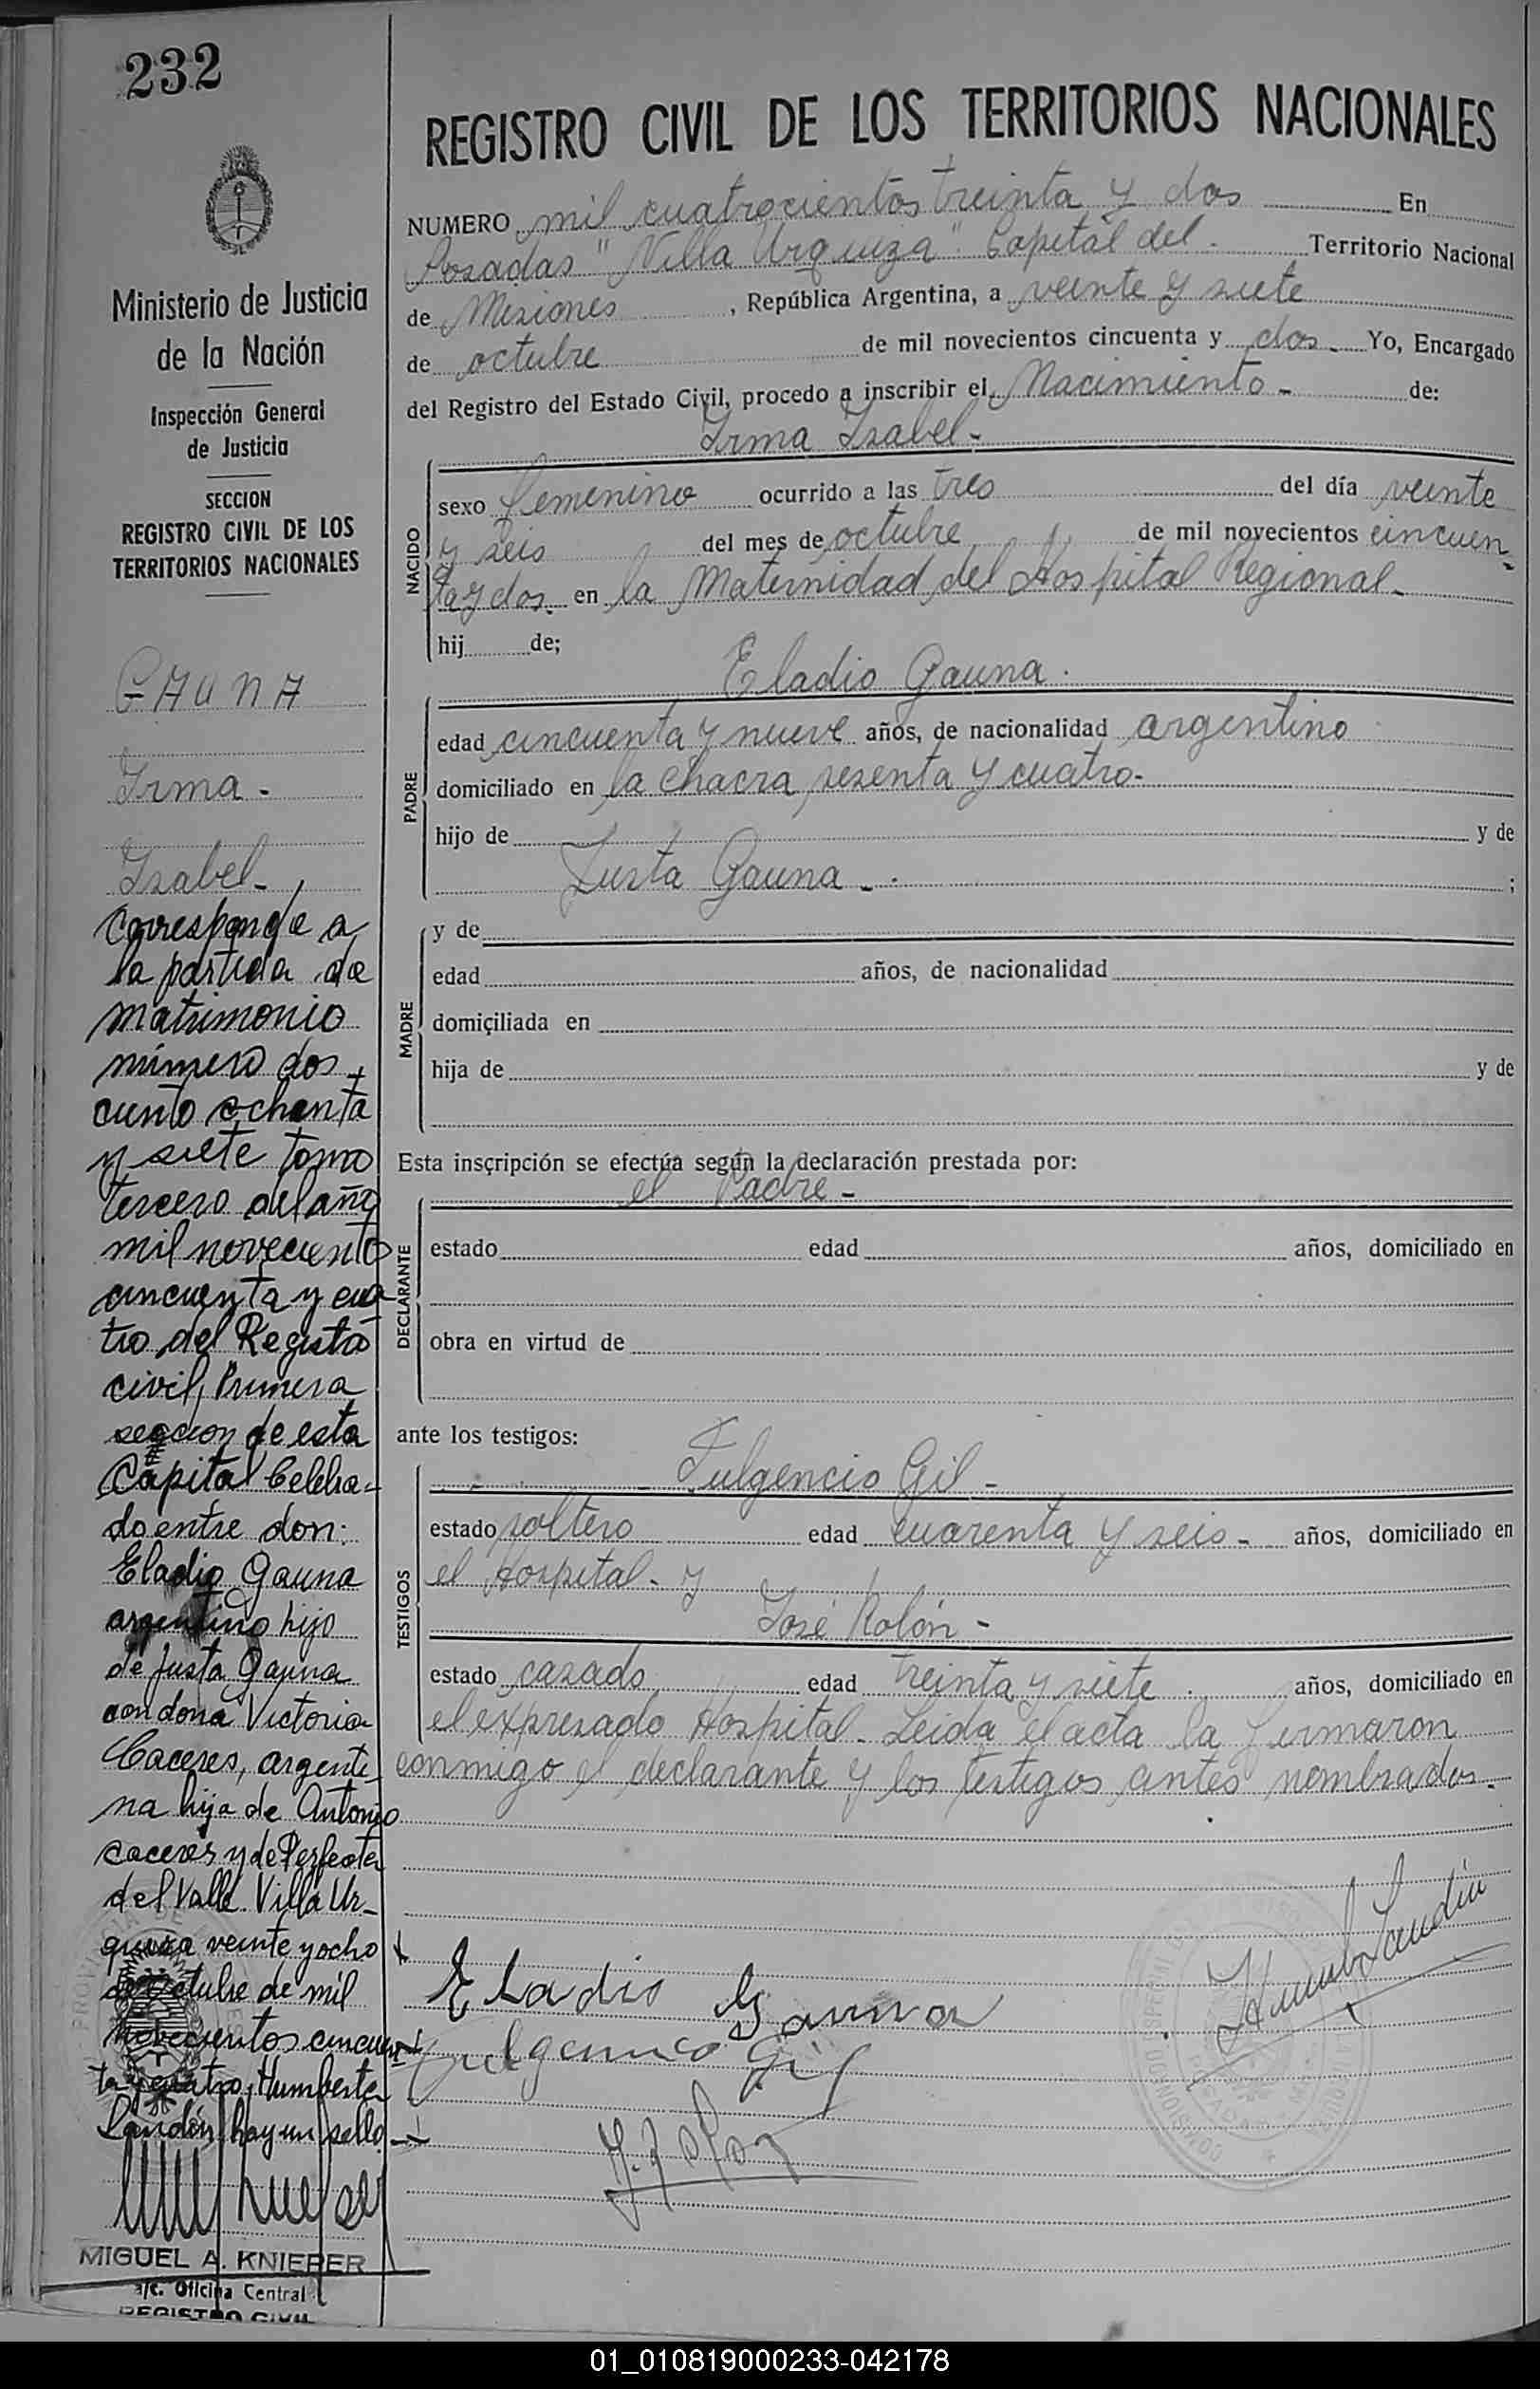 232
Ministerio de Justicia
de la Nación
Inspección General
de Justicia
SECCION
REGISTRO CIVIL DE LOS
TERRITORIOS NACIONALES
GAUNA
Irma -
Isabel -
Corresponde a
la partida de
matrimonio
número dos
ciento ochenta
y siete tomo
tercero del año
mil noveciento
cincuenta y cua
tro del Registro
civil, Primera
seccion de esta
Capital Celebra-
do entre don:
Eladio Gauna
argentino hijo
de Justa Gauna
con doña Victoria
Caceres, argenti-
na hija de Antonio
caceres y de Perfecta
del Valle. Villa Ur-
quiza veinte y ocho
de octubre de mil
novecientos cincuen-
ta y cuatro, Humberto
Landín, hay un sello -
MIGUEL A. KNIEPER
a/c. Oficina Central
REGISTRO CIVIL
REGISTRO CIVIL DE LOS TERRITORIOS NACIONALES
NUMERO mil cuatrocientos treinta y dos En
Posadas "Villa Urquiza" Capital del Territorio Nacional
de Misiones , República Argentina, a veinte y siete
de octubre de mil novecientos cincuenta y dos Yo, Encargado
del Registro del Estado Civil, procedo a inscribir el Nacimiento - de:
Irma Isabel -
NACIDO
sexo femenino ocurrido a las tres del día veinte
y seis del mes de octubre de mil novecientos cincuen-
ta y dos en la Maternidad del Hospital Regional -
hij de;
Eladio Gauna
PADRE
edad cincuenta y nueve años, de nacionalidad argentino
domiciliado en la chacra sesenta y cuatro -
hijo de y de
Justa Gauna - ;
MADRE
y de
edad años, de nacionalidad
domiciliada en
hija de y de
Esta inscripción se efectúa según la declaración prestada por:
el Padre -
DECLARANTE
estado edad años, domiciliado en
obra en virtud de
ante los testigos:
Fulgencio Gil -
TESTIGOS
estado soltero edad cuarenta y seis - años, domiciliado en
el Hospital - y
José Rolón -
estado casado edad treinta y siete años, domiciliado en
el expresado Hospital - Leida el acta la firmaron
conmigo el declarante y los testigos antes nombrados -
Eladio Gauna
Fulgencio Gil
J. Rolon
01_010819000233-042178